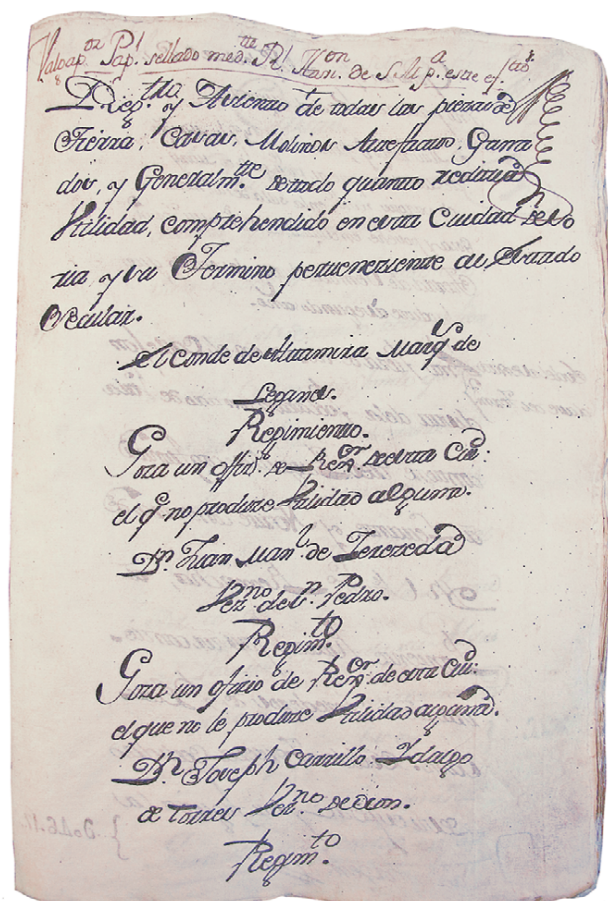 Regtto y Asiento de todas las piezas de
Tierra, Casas, Molinos Artefactos, Gana
dos, y Generalmtte de todo quanto reditua
Utilidad, comprehendido en esta Ciudad de So
ria y su Termino perteneciente al Estado
Secular.
El Conde de Altamira Marqs de
Leganes.
Regimiento.
Goza un offizo de Regor de esta Ciud:
el qe no produze Utilidad alguna.
Dn Juan Manl de Zereceda
Vezno de Sn Pedro.
Regimto
Goza un ofizio de Regor de esta Ciud:
el que no le produze Utilidad alguna.
Dn Joseph Carrillo Ydalgo
de Torres Vezno de
Regimto